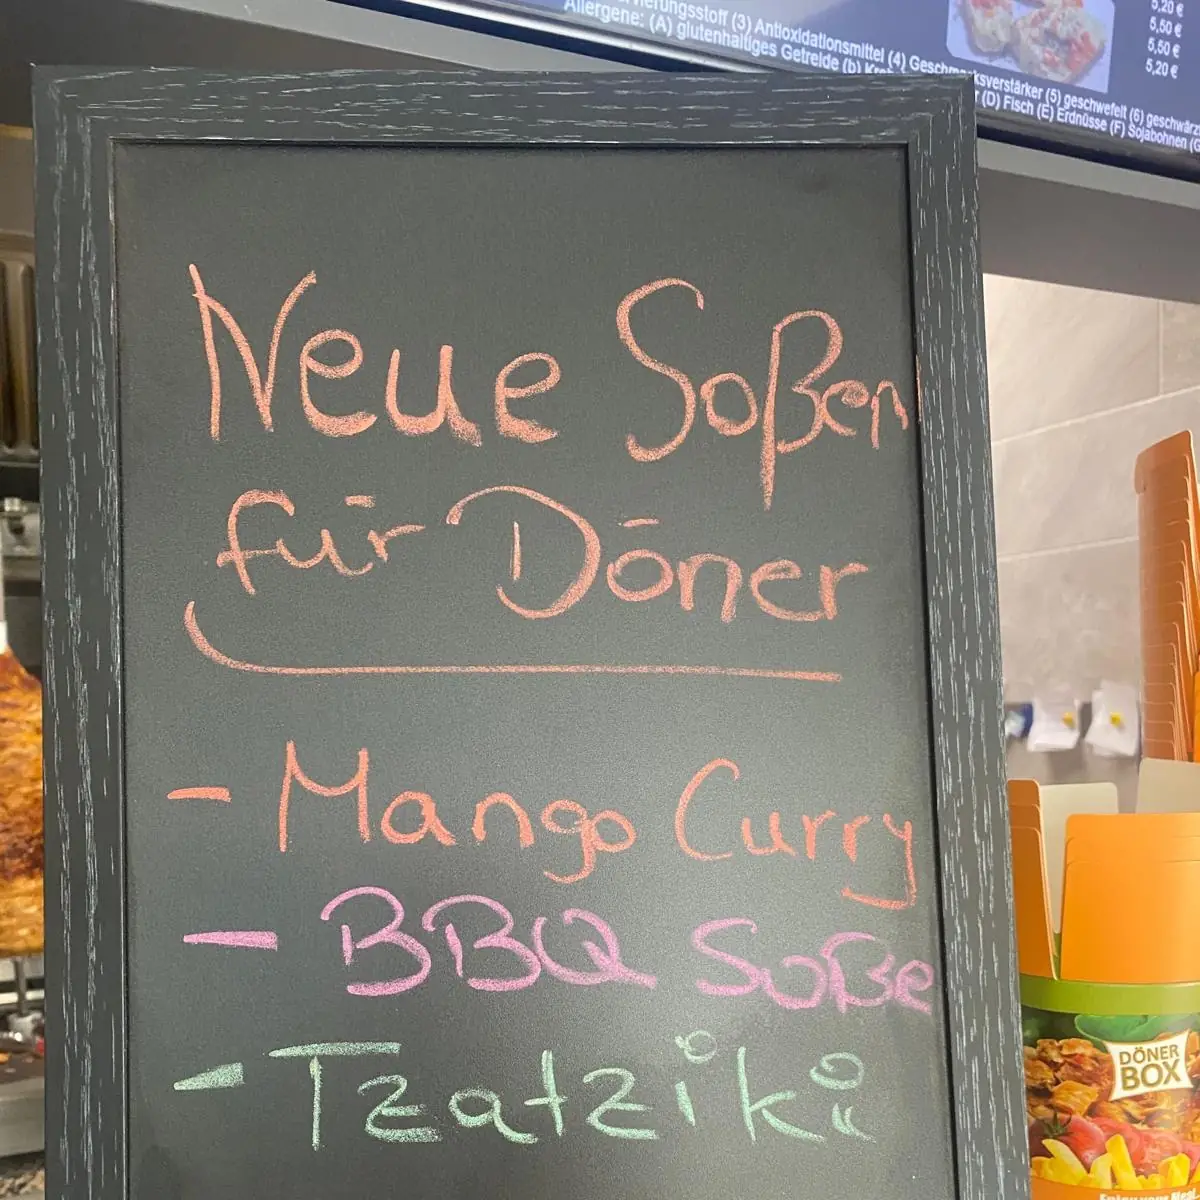 5,20 €
5,50 €
5,50 €
5,20 €
(3) Antioxidationsmittel (4) Geschmacksverstärker (5) geschwefelt (6)
Allergene: (A) glutenhaltiges Getreide (b) (D) Fisch (E) Erdnüsse (F) Sojabohnen (G
Neue Soßen
für Döner
- Mango Curry
- BBQ Soße
- Tzatziki
DÖNER
BOX